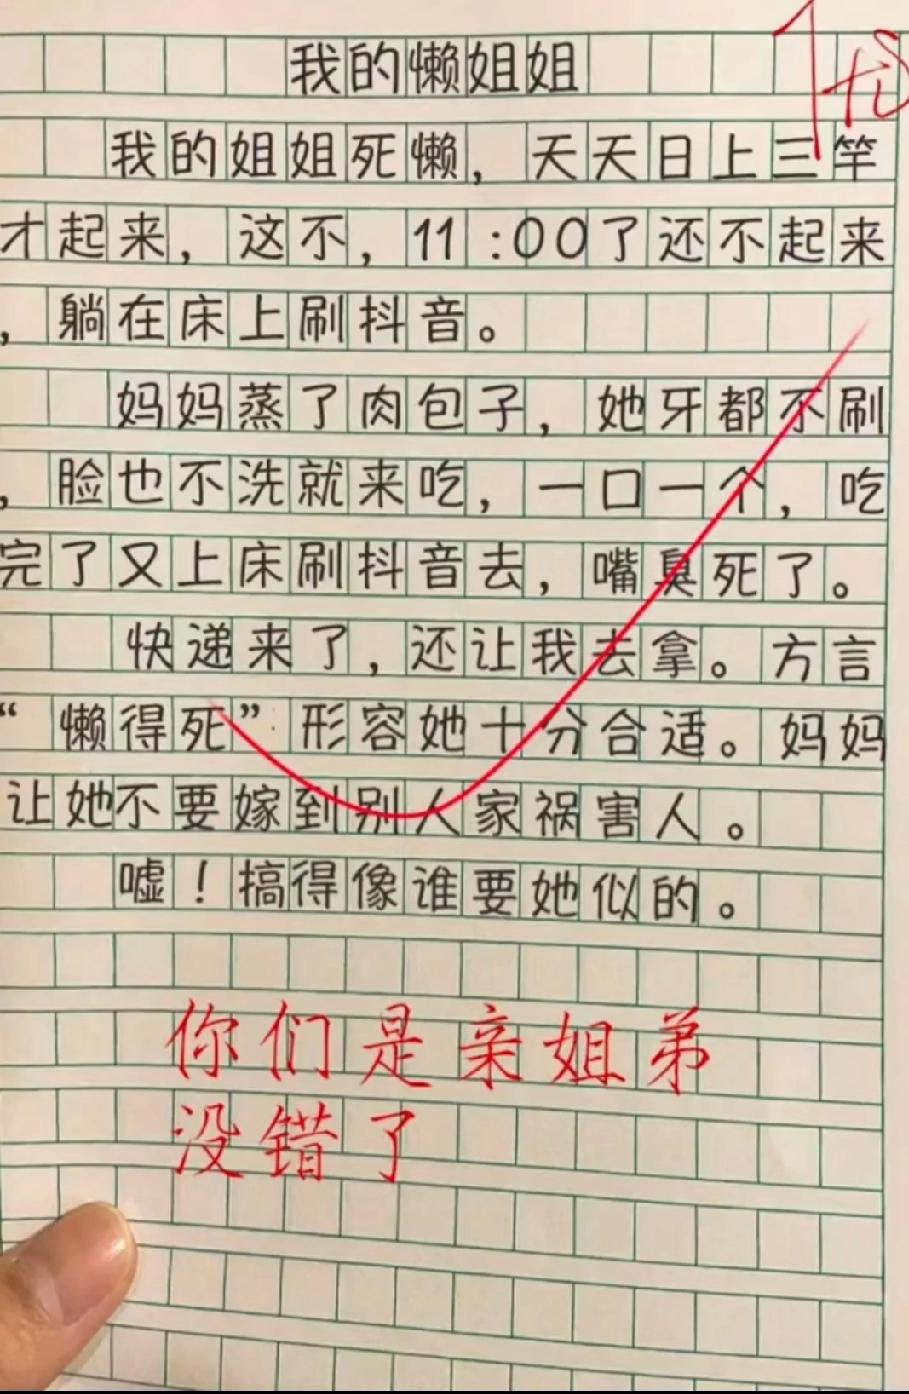 我的懒姐姐
优
我的姐姐死懒，天天日上三竿
才起来，这不，11:00了还不起来
，躺在床上刷抖音。
妈妈蒸了肉包子，她牙都不刷
，脸也不洗就来吃，一口一个，吃
完了又上床刷抖音去，嘴臭死了。
快递来了，还让我去拿。方言
“懒得死”形容她十分合适。妈妈
让她不要嫁到别人家祸害人。
嘘！搞得像谁要她似的。
你们是亲姐弟
没错了